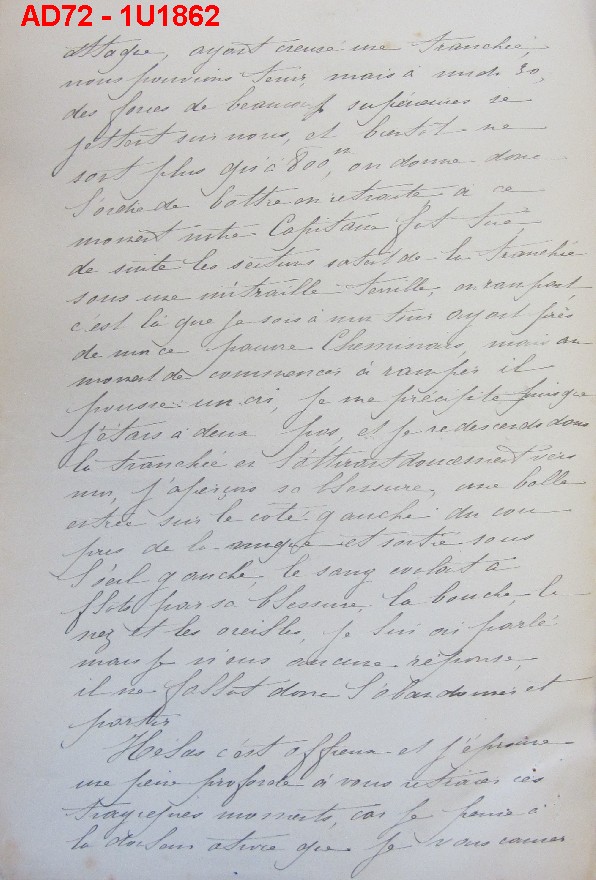 AD72 - 1U1862
attaque, ayant creusé une tranchée,
nous pouvions tenir, mais à midi 30,
des forces de beaucoup supérieures se
jettent sur nous, et bientôt ne
sont plus qu'à 800 m, on donne donc
l'ordre de battre en retraite à ce
moment notre Capitaine fut tué
de suite les sections sortent de la tranchée
sous une mitraille terrible, en rampant
c'est là que je sors à mon tour ayant près
de moi ce pauvre Cheminais, mais au
moment de commencer à ramper il
pousse un cri, je me précipite puisque
j'étais à deux pas, et je redescends dans
la tranchée en l'attirant doucement vers
moi, j'aperçois sa blessure, une balle
entrée sur le côté gauche du cou
près de la nuque et sortie sous
l'œil gauche, le sang coulait à
flots par sa blessure, la bouche, le
nez et les oreilles, je lui ai parlé
mais je n'eus aucune réponse,
il me fallut donc l'abandonner et
partir
Hélas c'est affreux et j'éprouve
une peine profonde à vous retracer ces
tragiques moments, car je pense à
la douleur atroce que je vous cause